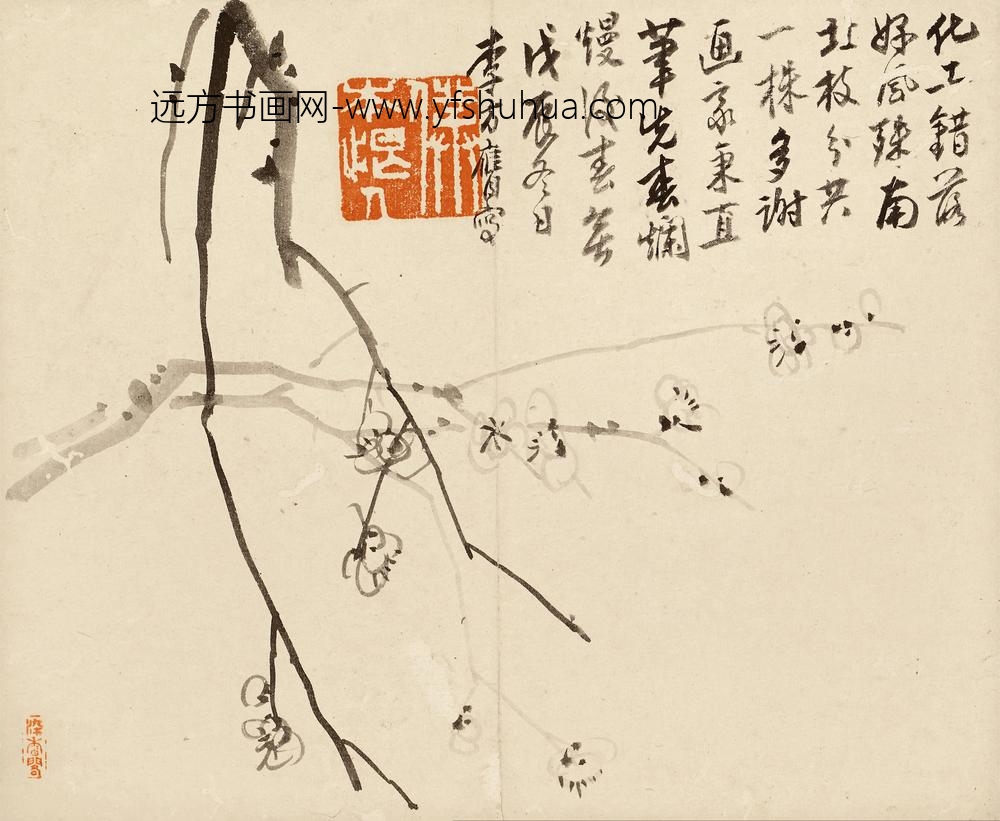 化工錯落
好風殊南
北枝分共
一株多謝
画家秉直
筆先春爛
熳後春無
戊辰冬日
李方膺寫
远方书画网-www.yfshuhua.com